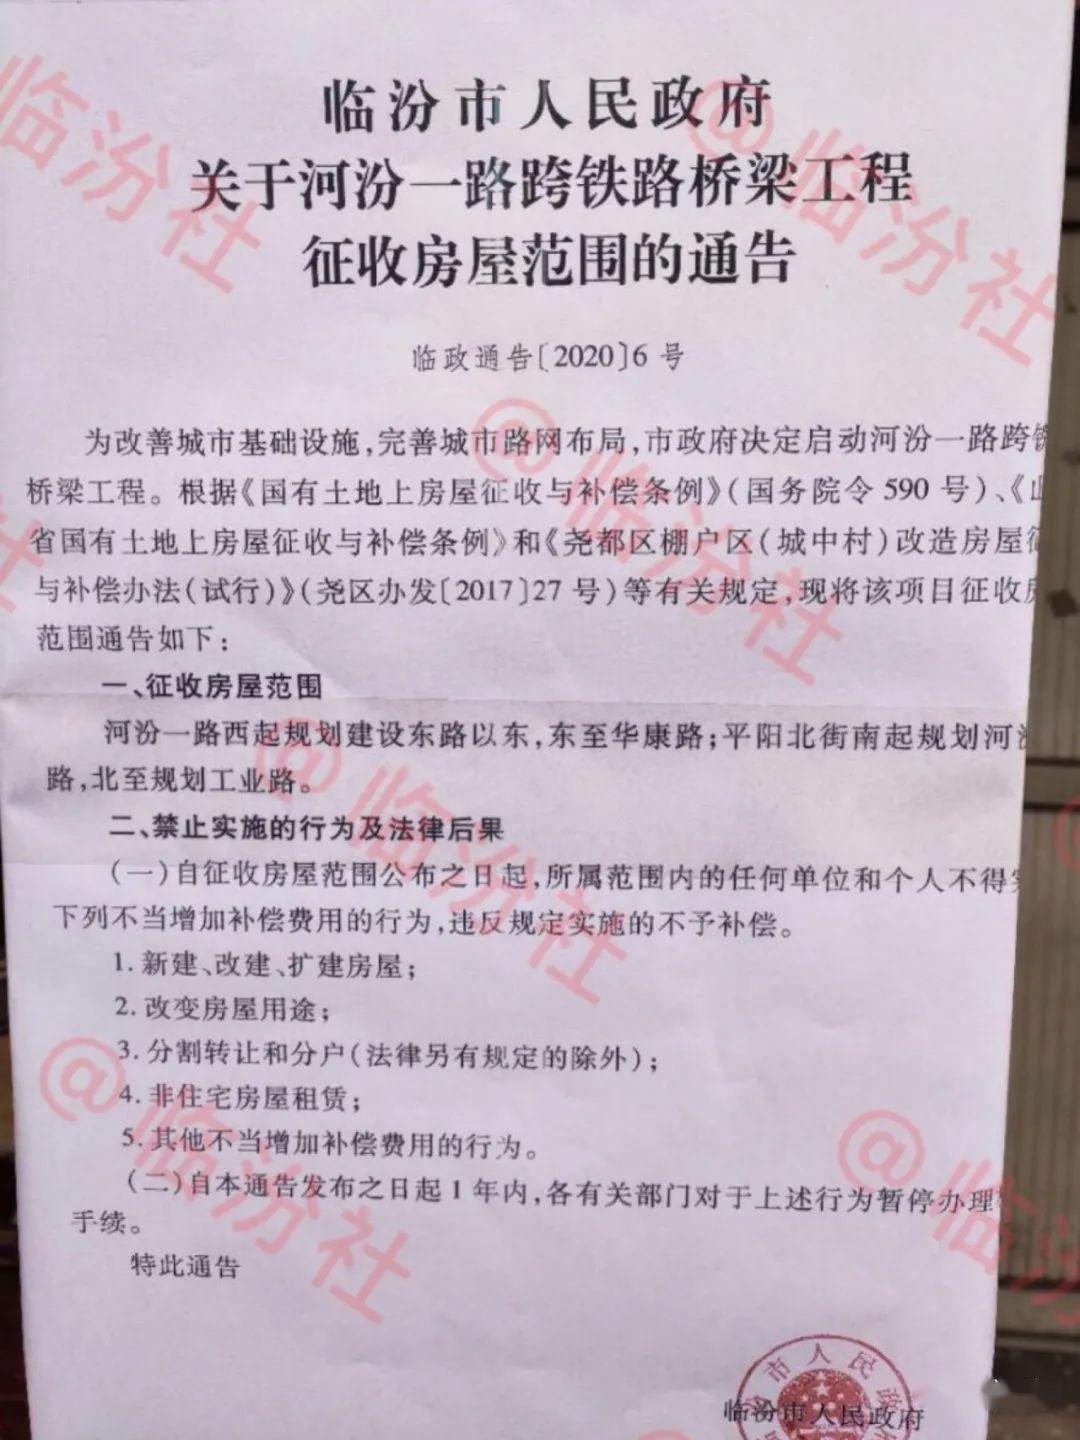 临汾市人民政府
关于河汾一路跨铁路桥梁工程
征收房屋范围的通告
临政通告〔2020〕6号
为改善城市基础设施,完善城市路网布局,市政府决定启动河汾一路跨
桥梁工程。根据《国有土地上房屋征收与补偿条例》(国务院令590号)、《
省国有土地上房屋征收与补偿条例》和《尧都区棚户区(城中村)改造房屋
与补偿办法(试行)》(尧区办发〔2017〕27号)等有关规定,现将该项目征收
范围通告如下:
一、征收房屋范围
河汾一路西起规划建设东路以东,东至华康路;平阳北街南起规划河
路,北至规划工业路。
二、禁止实施的行为及法律后果
(一)自征收房屋范围公布之日起,所属范围内的任何单位和个人不得
下列不当增加补偿费用的行为,违反规定实施的不予补偿。
1.新建、改建、扩建房屋;
2.改变房屋用途;
3.分割转让和分户(法律另有规定的除外);
4.非住宅房屋租赁;
5.其他不当增加补偿费用的行为。
(二)自本通告发布之日起1年内,各有关部门对于上述行为暂停办理
手续。
特此通告
市人民政
临汾市人民政府
临汾社
@临汾社
@临汾社
@临汾社
@临汾社
@临汾